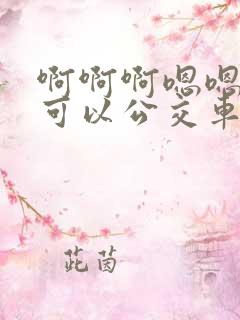 啊啊啊嗯嗯
可以公交车
茈茵